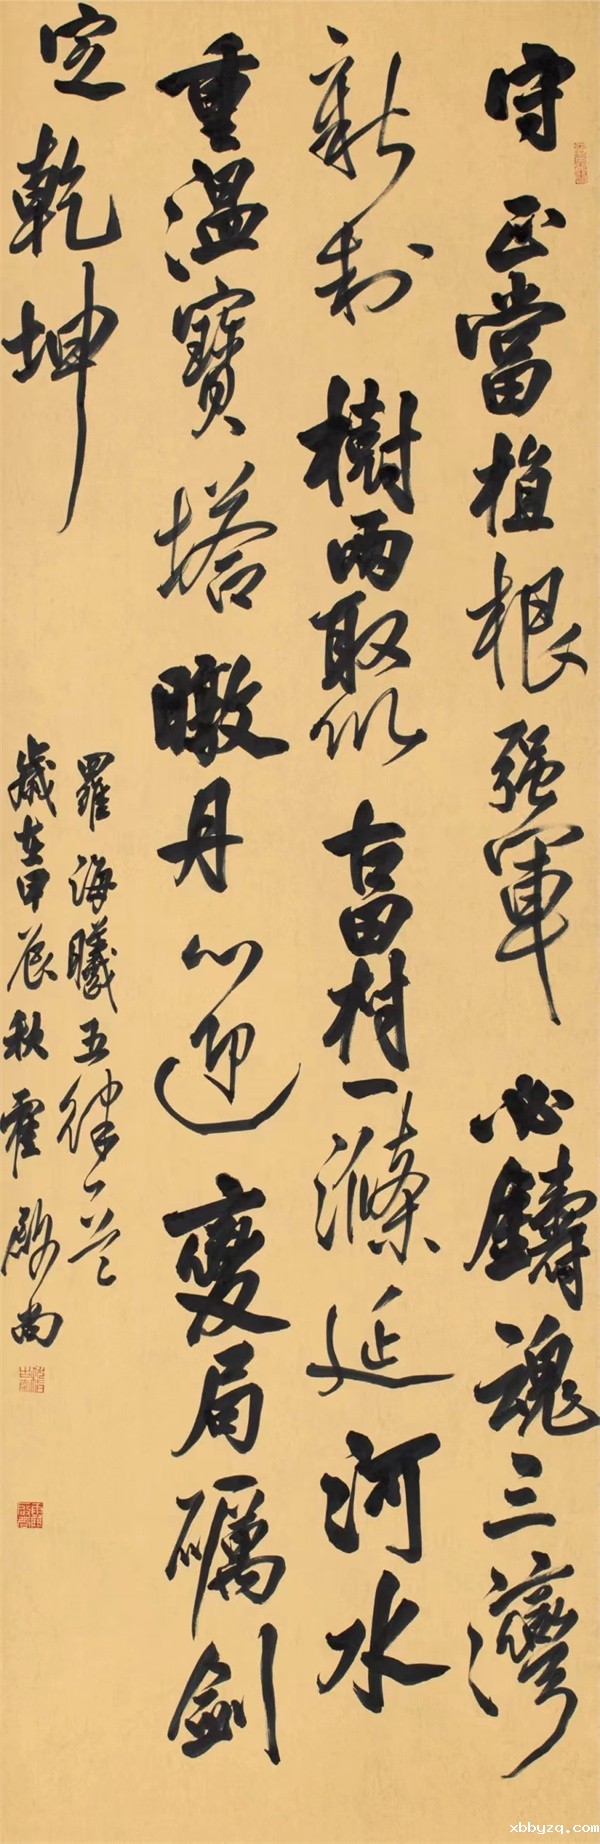 守正當植根强軍必鑄魂三灣
新制樹雨聚古田村一滌延河水
重溫寶塔暾丹心迎變局礪劍
定乾坤
羅海曦五律一首
歲在甲辰秋霍尚
xbbyzq.com